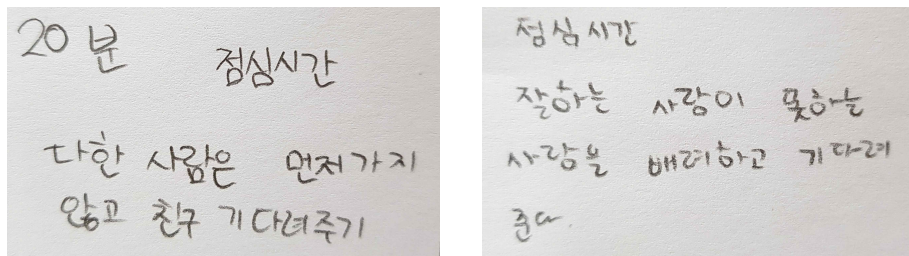 20 분
점심시간
다한 사람은 먼저가지
않고 친구 기다려주기
점심시간
잘하는 사람이 못하는
사람을 배려하고 기다려
준다